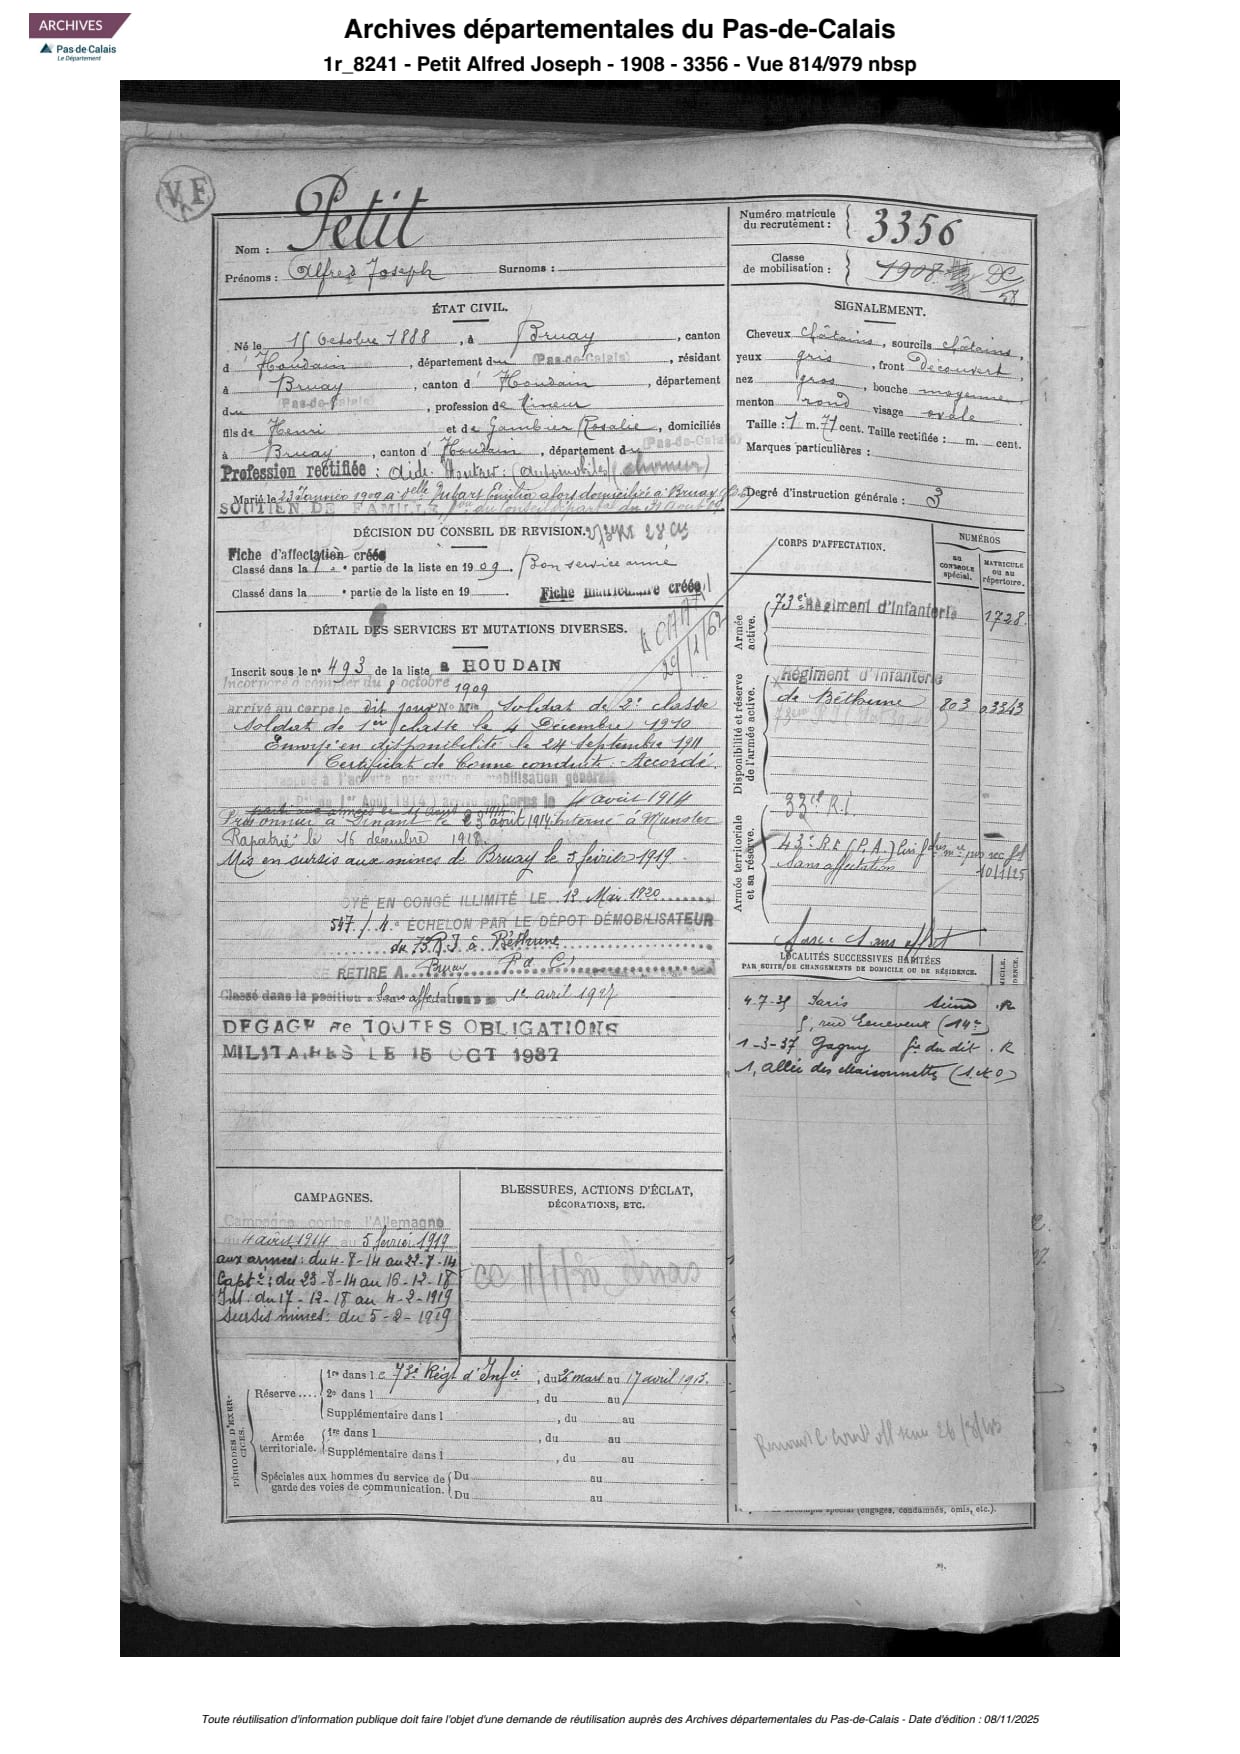 ARCHIVES
Pas-de-Calais
Le Département
Archives départementales du Pas-de-Calais
1r_8241 - Petit Alfred Joseph - 1908 - 3356 - Vue 814/979 nbsp
V.F
Nom : Petit
Prénoms : Alfred Joseph Surnoms :
Numéro matricule du recrutement : 3356
Classe de mobilisation : 1908
ÉTAT CIVIL.
Né le 15 Octobre 1888, à Bruay, canton
d'Houdain, département du (Pas-de-Calais), résidant
à Bruay, canton d'Houdain, département
du Pas-de-Calais, profession de mineur
fils de Henri et de Gambier Rosalie, domiciliés
à Bruay, canton d'Houdain, département du (Pas-de-Calais)
Profession rectifiée : Aide- (automobiles) (chomeur)
Marié le 23 Janvier 1909 à Delle Émilie alors domiciliée à Bruay
SOUTIEN DE FAMILLE, du Conseil départal du
SIGNALEMENT.
Cheveux châtains, sourcils châtains,
yeux gris, front Découvert,
nez gros, bouche moyenne
menton rond visage ovale
Taille : 1 m. 71 cent. Taille rectifiée : m. cent.
Marques particulières :
Degré d'instruction générale : 3
DÉCISION DU CONSEIL DE REVISION.
Fiche d'affectation créée
Classé dans la 1e partie de la liste en 1909. Bon service armé
Classé dans la e partie de la liste en 19
Fiche matriculaire créée
DÉTAIL DES SERVICES ET MUTATIONS DIVERSES.
29/1/62
Inscrit sous le no 493 de la liste a HOUDAIN
Incorporé à compter du 8 octobre 1909
arrivé au corps le dit jour No Mle Soldat de 2e classe
Soldat de 1ère classe le 4 Décembre 1910
Envoyé en disponibilité le 24 septembre 1911
Certificat de bonne conduite Accordé.
Rappelé à l'activité par suite de mobilisation générale
du 1er Août 1914) arrivé au Corps le 4 août 1914
parti aux armées le
Prisonnier à Dinant le 23 août 1914 Interné à Munster
Rapatrié le 16 décembre 1918
Mis en sursis aux mines de Bruay le 5 février 1919.
OYÉ EN CONGÉ ILLIMITÉ LE 12 Mai 1920
4e ÉCHELON PAR LE DÉPOT DÉMOBILISATEUR
du 73e R.I à Béthune
SE RETIRE A Bruay P.d.C.
Classé dans la position "Sans affectation" 1e avril 1927
DEGAGÉ de TOUTES OBLIGATIONS
MILITAIRES LE 15 OCT 1937
CORPS D'AFFECTATION.
NUMÉROS
au CONTROLE spécial.
MATRICULE ou au répertoire.
Armée active.
73e Régiment d'Infanterie 1728
Disponibilité et réserve de l'armée active.
Régiment d'Infanterie
de Béthune 803 03343
Armée territoriale et sa réserve.
33e R.I.
43e R.I. (P.A.)
Sans affectation
10/1/25
LOCALITÉS SUCCESSIVES HABITÉES
PAR SUITE DE CHANGEMENTS DE DOMICILE OU DE RÉSIDENCE.
4-7-35 Paris Seine R
5, rue (14e)
1-3-37 Gagny fin du dit R
1, allée des Maisonnettes (S. et O)
CAMPAGNES.
Campagne contre l'Allemagne
du 4 août 1914 au 5 février 1919
aux armées : du 4-8-14 au 22-8-14
Capté : du 23-8-14 au 16-12-18
Int. du 17-12-18 au 4-2-1919
Sursis mines : du 5-2-1919
BLESSURES, ACTIONS D'ÉCLAT,
DÉCORATIONS, ETC.
PÉRIODES D'EXERCICES.
Réserve.... 1re dans le 73e Régt d'Infie, du 26 mars au 17 avril 1913.
2e dans l , du au
Supplémentaire dans l , du au
Armée territoriale. 1re dans l , du au
Supplémentaire dans l , du au
Spéciales aux hommes du service de garde des voies de communication. Du au
Du au
spécial (engagés, condamnés, omis, etc.).
Toute réutilisation d'information publique doit faire l'objet d'une demande de réutilisation auprès des Archives départementales du Pas-de-Calais - Date d'édition : 08/11/2025